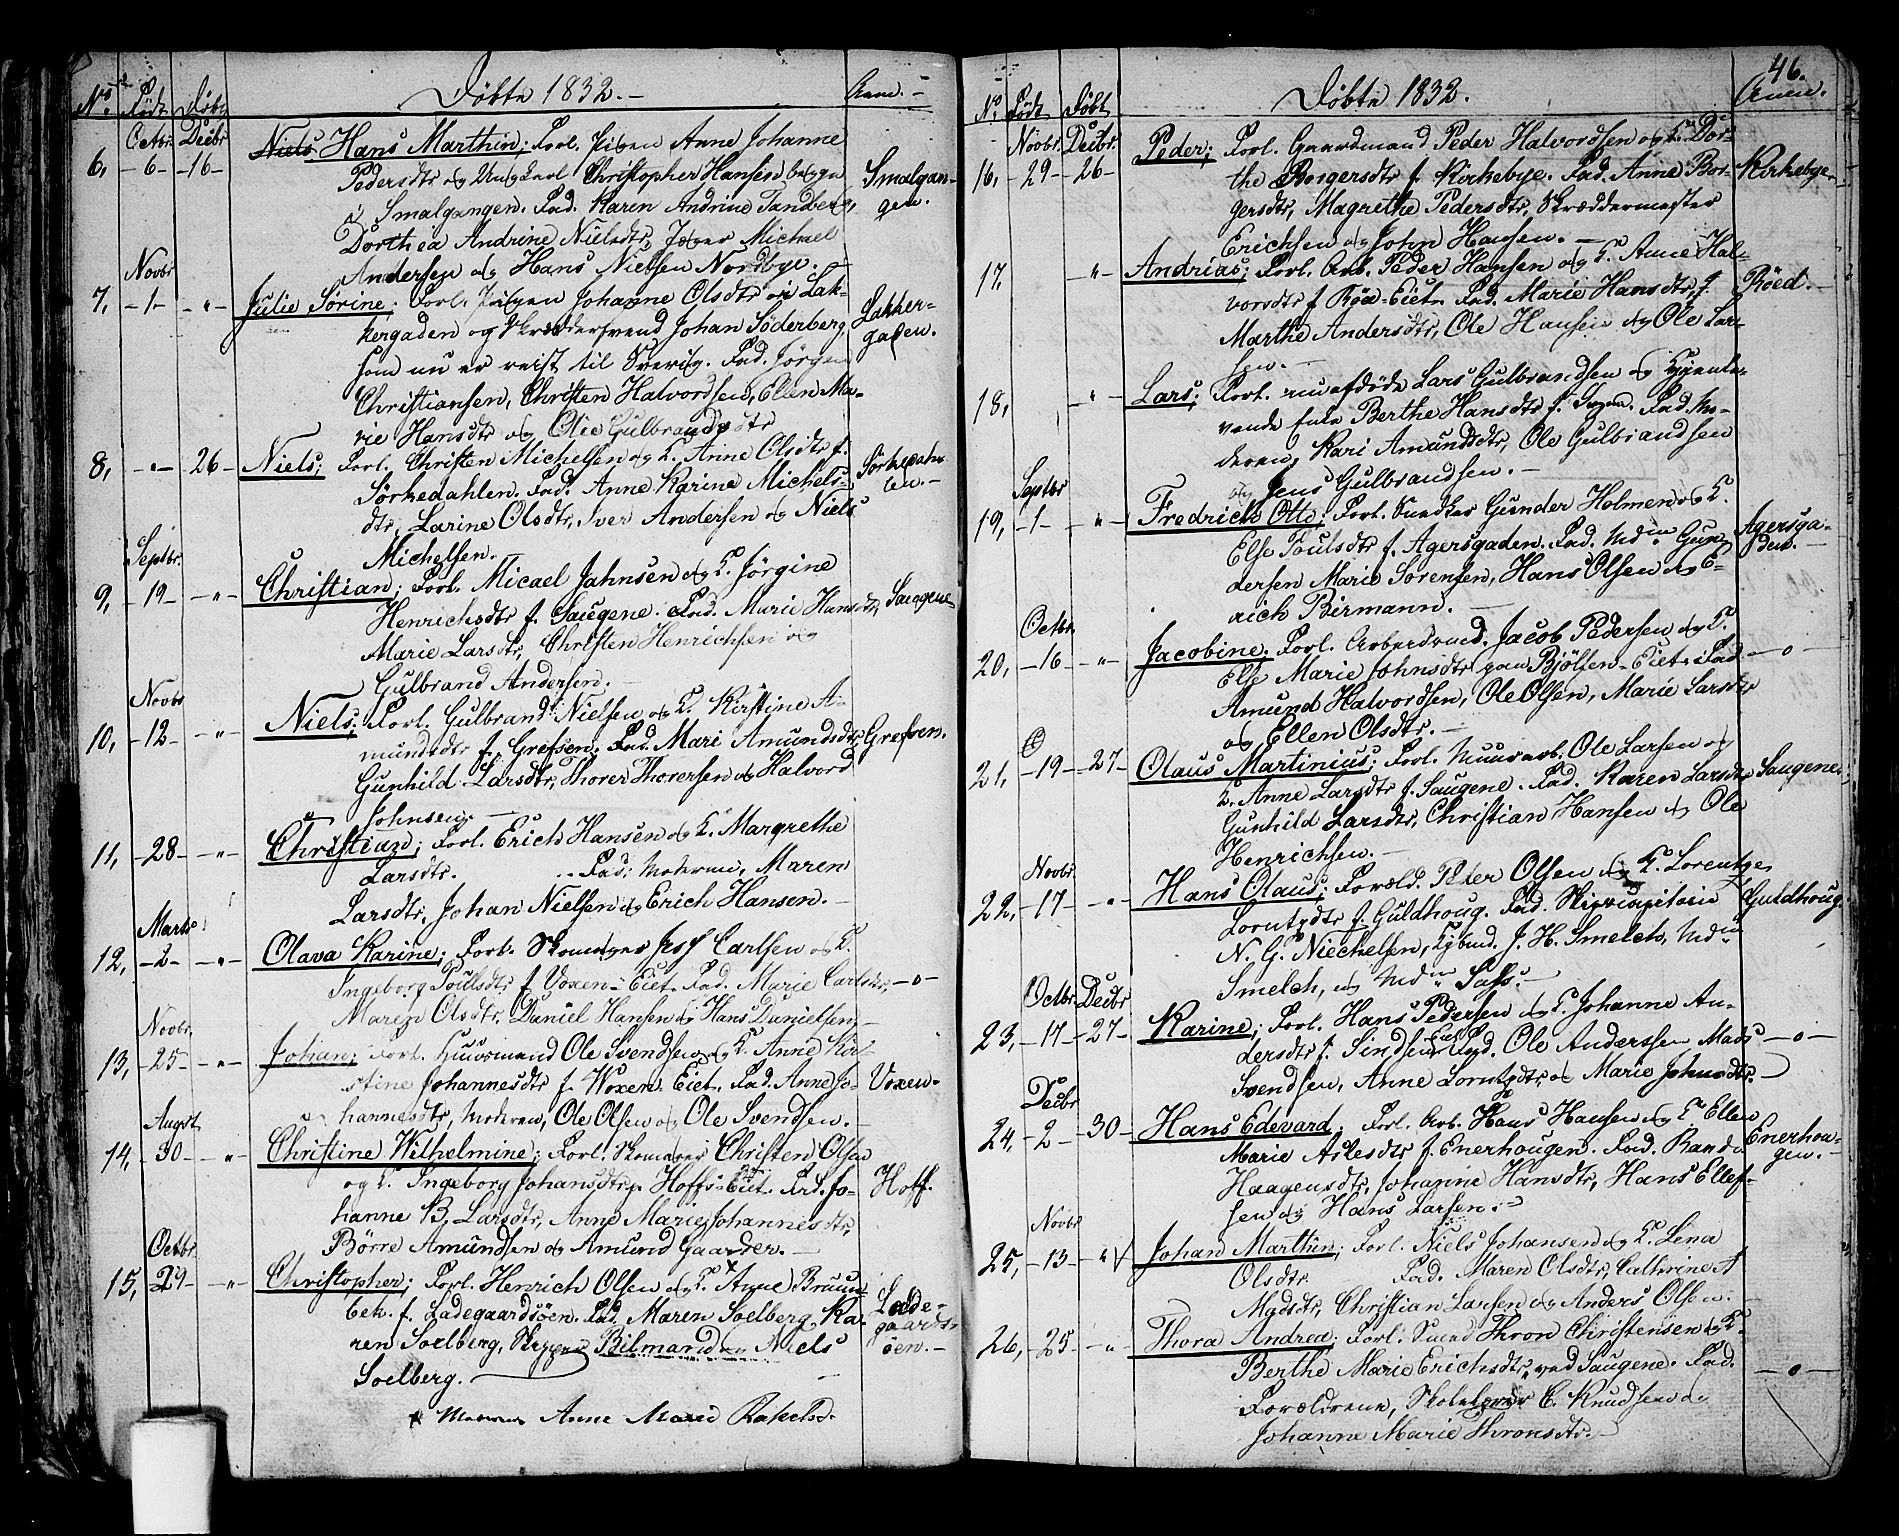 No. Født Døbt
Døbte 1832.
Anm.
Octbr. Decbr
6, -6- -16- Niels Hans Marthin; Forl. Pigen Anne Johanne
Pedersdtr og Ungkarl Christopher Hansen begge
i Smalgangen. Fad. Karen Andrine Tandberg,
Smalgangen.
Dorthea Andrine Nielsdtr, Jæger Michael
Andersen og Hans Nielsen Nordbye.
Novbr
7, -1- -"- Julie Sørine; Forl. Pigen Johanne Olsdtr i Lak-
kergaden og Skræddersvend Johan Söderberg,
Lakkergaden.
som nu er reist til Sverig. Fad. Jørgen
Christiansen, Christen Halvordsen, Ellen Ma-
rie Hansdtr og Olie Gulbrandsdtr
8, -"- 26- Niels; Forl. Christen Michelsen og K. Anne Olsdtr f.
Sørkedahlen. Fad. Anne Karine Michels-
Sørkedahlen.
dtr, Larine Olsdtr, Iver Andersen og Niels
Michelsen.
Septbr.
9, -19- -"- Christian; Forl. Micael Jahnsen og K. Jørgine
Henrichsdtr f. Saugene. Fad. Marie Hansdtr,
Saugene
Marie Larsdtr, Christen Henrichsen og
Gulbrand Andersen.
Novbr
10, -12- -"- Niels; Forl. Gulbrand Nielsen og K. Kirstine A-
mundsdtr f. Grefsen. Fad. Mari Amundsdtr
Grefsen.
Gunhild Larsdtr, Thorer Thorersen og Halvord
Johnsen.
11, -28- -"- Christian; Forl. Erich Hansen og K. Margrethe
Larsdtr. Fad. Moderen, Maren
Larsdtr, Johan Nielsen og Erich Hansen.
Marts
12, -2- -"- Olava Karine; Forl. Skomager Jess Carlsen og K.
Ingeborg Poulsdtr f. Voxen-Eiet. Fad. Marie Carlsdtr, -o-
Maren Olsdtr, Daniel Hansen og Hans Danielsen.
Novbr.
13, -25- -"- Johan; Forl. Huusmand Ole Svendsen og K. Anne Kir-
stine Johannesdtr f. Woxen Eiet. Fad. Anne Jo-
Voxen.
hannesdtr, Moderen, Ole Olsen og Ole Svendsen.
Augst
14, -30- -"- Christine Wilhelmine; Forl. Skomager Christen Olsen
og K. Ingeborg Johansdtr p. Hoffs-Eiet. Fad. Jo-
Hoff.
hanne B. Larsdtr, Anne Marie Johannesdtr,
Børre Amundsen og Amund Gaarder.
Octbr
15, 29- -"- Christopher; Forl. Henrich Olsen og K. x Anne Bruun
bek. f. Ladegaardsøen. Fad. Maren Soelberg, Ka-
Ladegaardsøen.
ren Soelberg, Skipper Bilmand og Niels
Soelberg.
x Anne Marie Rakelsd.
46.
No. Født Døbt
Døbte 1832.
Anm.
Novbr. Decbr.
16, -29- 26- Peder; Forl. Gaardmand Peder Halvordsen og K. Dor-
the Borgersdtr f. Kirkebye. Fad. Anne Bor-
Kirkebye
gersdtr, Magrethe Pedersdtr, Skræddermester
Erichsen og John Hansen.
17, -"- Andrias; Forl. Arb. Peder Hansen og K. Anne Hal-
vorsdtr f. Röe-Eiet. Fad. Marie Hansdtr,
Röed.
Marthe Andersdtr, Ole Hansen og Ole Lar-
sen.
18, -"- Lars; Forl. nu afdöde Lars Gulbrandsen og Gjenle-
vende Enke Berthe Hansdtr f. Fad. Mo-
deren, Kari Amundsdtr, Ole Gulbrandsen
og Jens Gulbrandsen.
Septbr
19, -1- -"- Fredrich Otto; Forl. Snedker Gunder Holmen og K.
Else Poulsdtr f. Agersgaden. Fad. Mdm Gun-
Agersgaden.
dersen Marie Sørensen, Hans Olsen og E-
rich Birmann.
Octbr.
20, -16- -"- Jacobine; Forl. Arbeidsmd. Jacob Pedersen og K.
Else Marie Johnsdtr paa Bjølsen-Eiet. Fad. -o-
Amund Halvordsen, Ole Olsen, Marie Larsdtr
og Ellen Olsdtr.
21, -19- -27- Olaus Martinius; Forl. Muurarb. Ole Larsen og
K. Anne Larsdtr f. Saugene. Fad. Karen Larsdtr
Saugene.
Gunhild Larsdtr, Christian Hansen og Ole
Henrichsen.
Novbr.
22, -17- -"- Hans Olaus; Foræld. Peder Olsen og K. Lorentze
Lorntzdtr f. Guldhoug. Fad. Skipscapitain
Guldhoug.
N. G. Niechelsen, Kjbmd. J. H. Smelch, Mdm
Smelch, og Mdm Sass.
Octbr Decbr
23, -17- 27- Karine; Forl. Hans Pedersen og K. Johanne An-
dersdtr f. Sindsen Eiet. Fad. Ole Anderssen Mads -o-
Svendsen, Anne Lorntzdtr og Marie Johnsdtr.
Decbr
24, -2- 30- Hans Edevard; Forl. Arb. Hans Hansen og K. Ellen
Marie Askesdtr f. Enerhougen. Fad. Randi
Enerhougen.
Haagensdtr, Johanne Hansdtr, Hans Ellef-
sen og Hans Larsen.
Novbr
25, -13- -"- Johan Marthin; Forl. Niels Johansen og K. Lena
Olsdtr. Fad. Maren Olsdtr, Cathrine A
Mgdsdtr, Christian Larsen og Anders Olsen.
26, -25- -"- Thora Andrea; Forl. Smed Thron Christensen og K.
Berthe Marie Erichsdtr ved Saugene. Fad.
-o-
Forældrene, Skolelærer C. Knudsen og
Johanne Marie Thronsdtr.